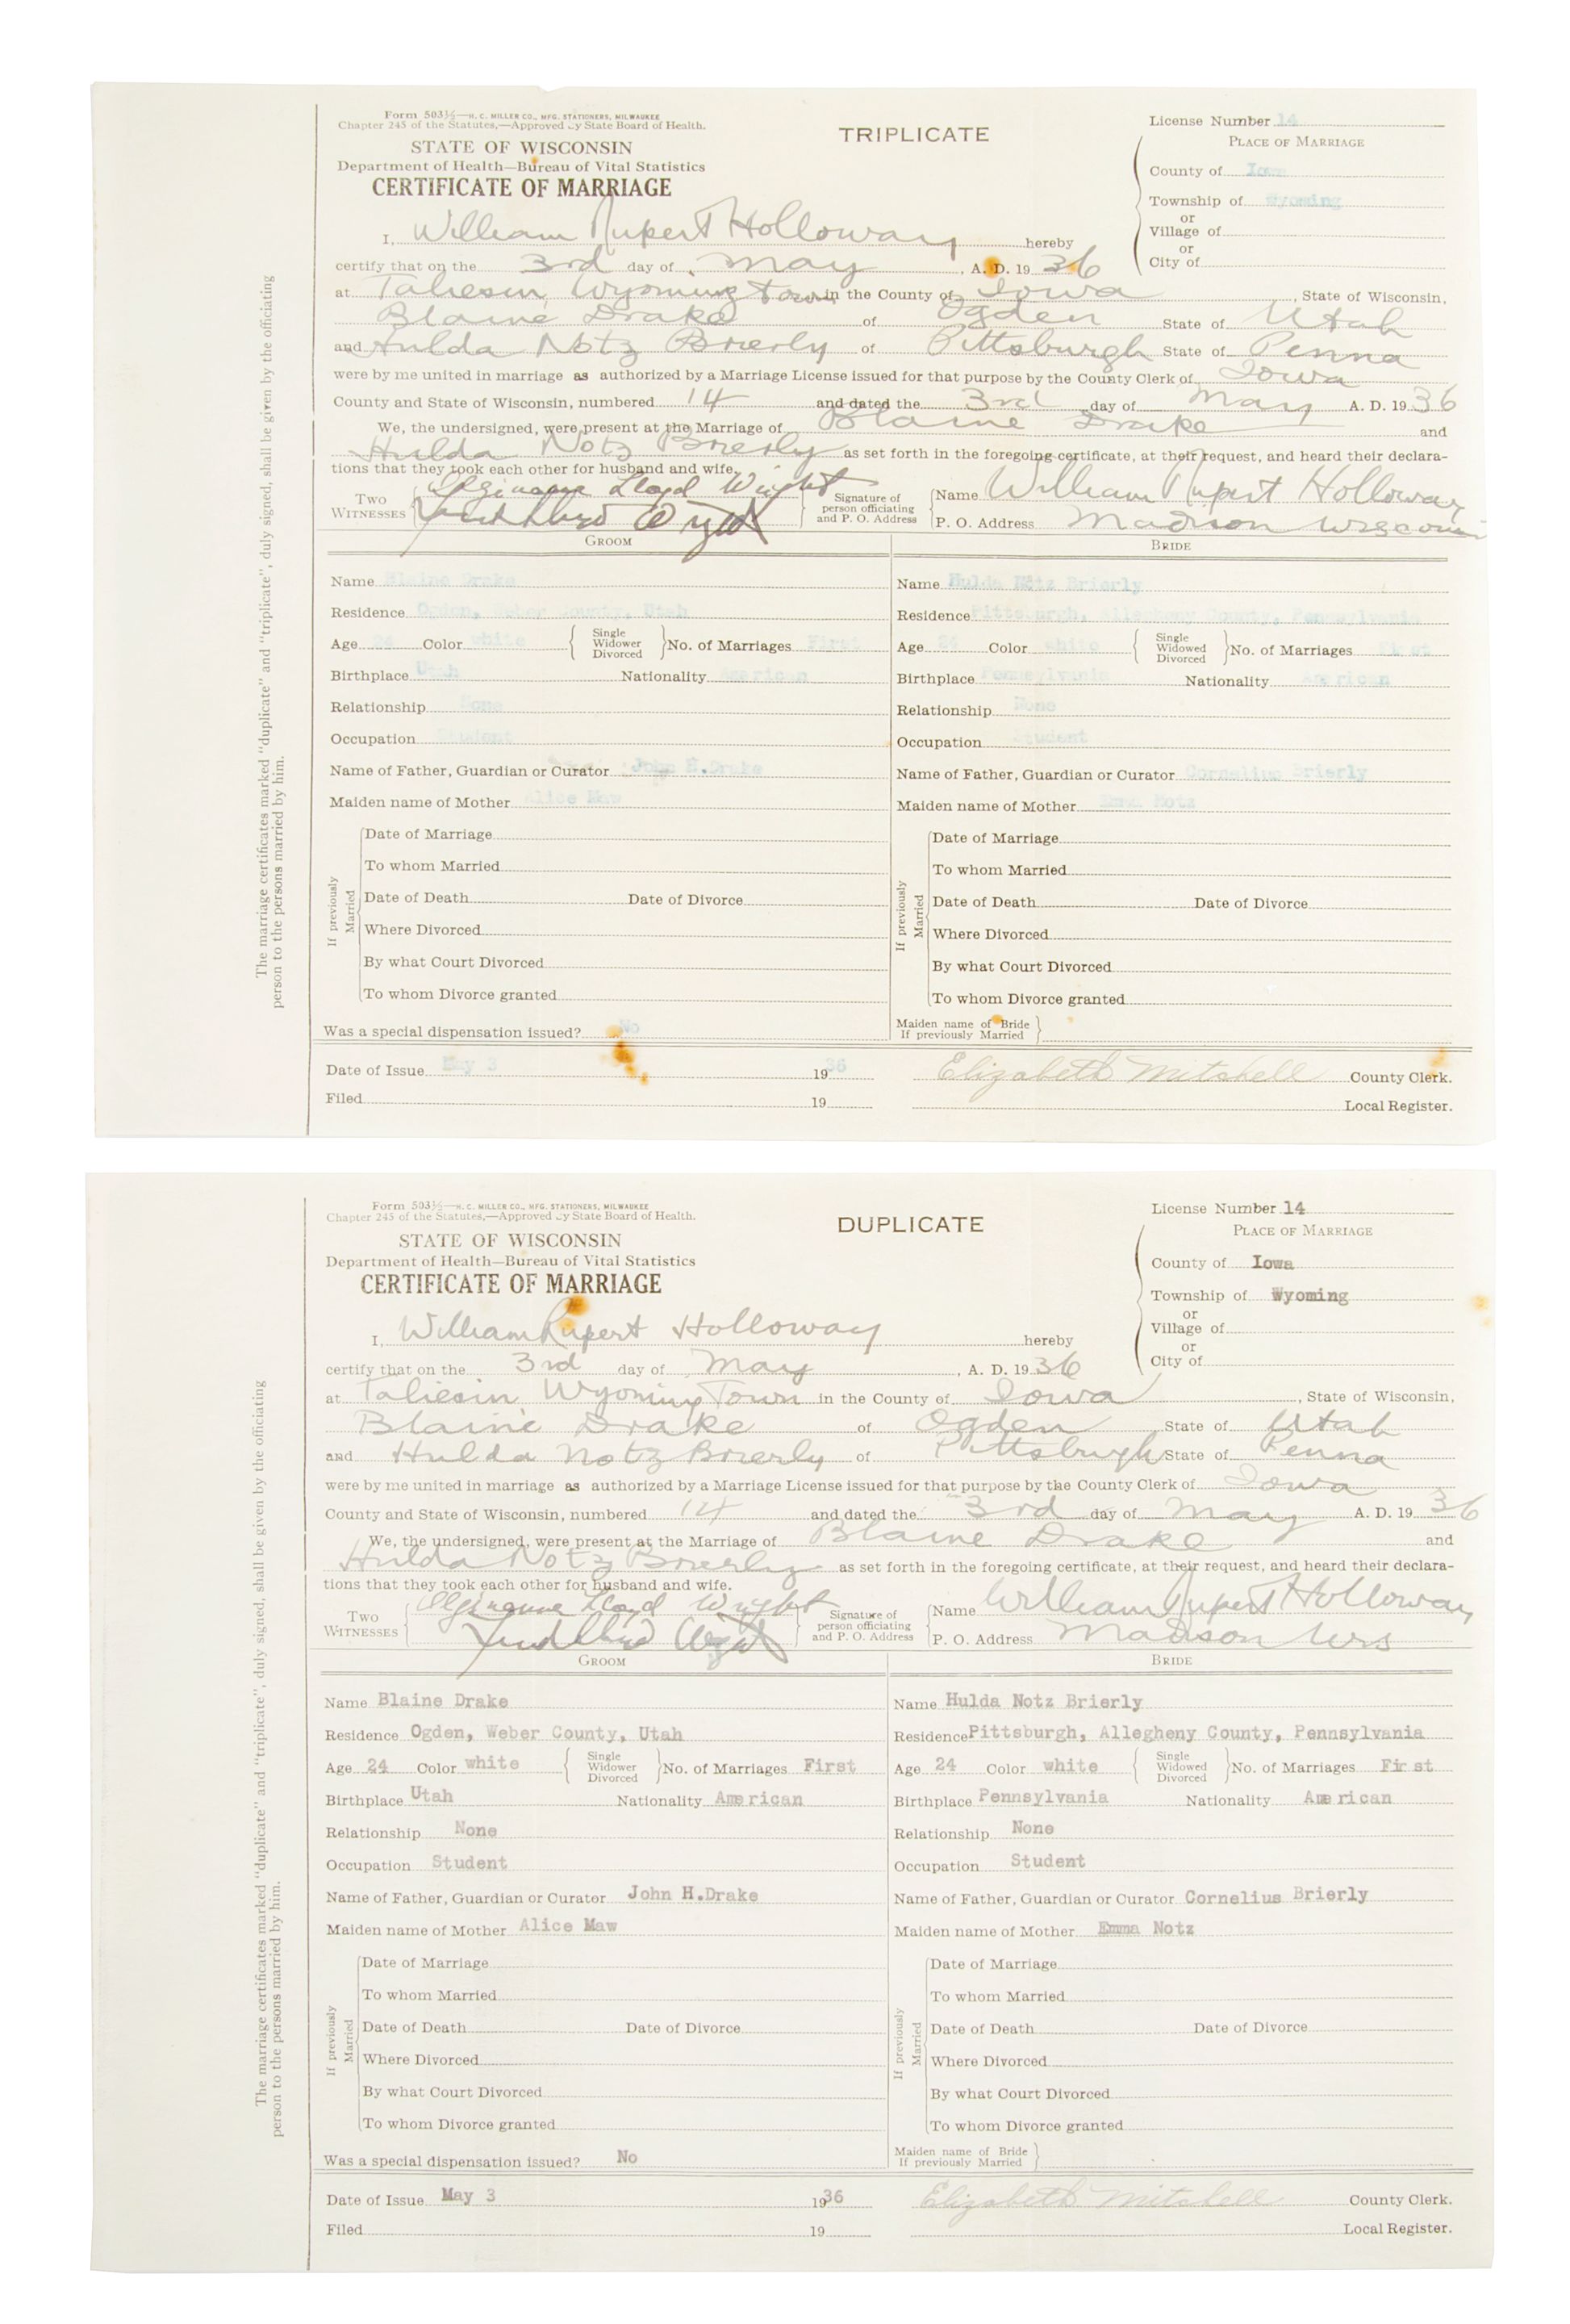 Form 503½—H. C. MILLER CO., MFG. STATIONERS, MILWAUKEE
Chapter 245 of the Statutes,—Approved by State Board of Health.
STATE OF WISCONSIN
Department of Health—Bureau of Vital Statistics
CERTIFICATE OF MARRIAGE
TRIPLICATE
License Number 14
PLACE OF MARRIAGE
County of Iowa
Township of Wyoming
or
Village of
or
City of
I, William Rupert Holloway hereby
certify that on the 3rd day of May, A. D. 19 36
at Taliesin Wyoming Town in the County of Iowa, State of Wisconsin,
Blaine Drake of Ogden State of Utah
and Hulda Notz Brierly of Pittsburgh State of Penna
were by me united in marriage as authorized by a Marriage License issued for that purpose by the County Clerk of Iowa
County and State of Wisconsin, numbered 14 and dated the 3rd day of May A. D. 19 36
We, the undersigned, were present at the Marriage of Blaine Drake and
Hulda Notz Brierly as set forth in the foregoing certificate, at their request, and heard their declara-
tions that they took each other for husband and wife.
TWO WITNESSES
Olgivanna Lloyd Wright
Frank Lloyd Wright
Signature of person officiating and P. O. Address
Name William Rupert Holloway
P. O. Address Madison Wisconsin
GROOM
Name Blaine Drake
Residence Ogden, Weber County, Utah
Age 24 Color white Single Widower Divorced No. of Marriages First
Birthplace Utah Nationality American
Relationship None
Occupation Student
Name of Father, Guardian or Curator John H.Drake
Maiden name of Mother Alice Maw
If previously Married
Date of Marriage
To whom Married
Date of Death Date of Divorce
Where Divorced
By what Court Divorced
To whom Divorce granted
Was a special dispensation issued? No
BRIDE
Name Hulda Notz Brierly
Residence Pittsburgh, Allegheny County, Pennsylvania
Age 24 Color white Single Widowed Divorced No. of Marriages First
Birthplace Pennsylvania Nationality American
Relationship None
Occupation Student
Name of Father, Guardian or Curator Cornelius Brierly
Maiden name of Mother Emma Notz
If previously Married
Date of Marriage
To whom Married
Date of Death Date of Divorce
Where Divorced
By what Court Divorced
To whom Divorce granted
Maiden name of Bride If previously Married
Date of Issue May 3 1936
Elizabeth Mitchell County Clerk.
Filed 19
Local Register.
The marriage certificates marked "duplicate" and "triplicate", duly signed, shall be given by the officiating
person to the persons married by him.
Form 503½—H. C. MILLER CO., MFG. STATIONERS, MILWAUKEE
Chapter 245 of the Statutes,—Approved by State Board of Health.
STATE OF WISCONSIN
Department of Health—Bureau of Vital Statistics
CERTIFICATE OF MARRIAGE
DUPLICATE
License Number 14
PLACE OF MARRIAGE
County of Iowa
Township of Wyoming
or
Village of
or
City of
I, William Rupert Holloway hereby
certify that on the 3rd day of May, A. D. 19 36
at Taliesin Wyoming Town in the County of Iowa, State of Wisconsin,
Blaine Drake of Ogden State of Utah
and Hulda Notz Brierly of Pittsburgh State of Penna
were by me united in marriage as authorized by a Marriage License issued for that purpose by the County Clerk of Iowa
County and State of Wisconsin, numbered 14 and dated the 3rd day of May A. D. 19 36
We, the undersigned, were present at the Marriage of Blaine Drake and
Hulda Notz Brierly as set forth in the foregoing certificate, at their request, and heard their declara-
tions that they took each other for husband and wife.
TWO WITNESSES
Olgivanna Lloyd Wright
Frank Lloyd Wright
Signature of person officiating and P. O. Address
Name William Rupert Holloway
P. O. Address Madison Wis
GROOM
Name Blaine Drake
Residence Ogden, Weber County, Utah
Age 24 Color white Single Widower Divorced No. of Marriages First
Birthplace Utah Nationality American
Relationship None
Occupation Student
Name of Father, Guardian or Curator John H.Drake
Maiden name of Mother Alice Maw
If previously Married
Date of Marriage
To whom Married
Date of Death Date of Divorce
Where Divorced
By what Court Divorced
To whom Divorce granted
Was a special dispensation issued? No
BRIDE
Name Hulda Notz Brierly
Residence Pittsburgh, Allegheny County, Pennsylvania
Age 24 Color white Single Widowed Divorced No. of Marriages First
Birthplace Pennsylvania Nationality American
Relationship None
Occupation Student
Name of Father, Guardian or Curator Cornelius Brierly
Maiden name of Mother Emma Notz
If previously Married
Date of Marriage
To whom Married
Date of Death Date of Divorce
Where Divorced
By what Court Divorced
To whom Divorce granted
Maiden name of Bride If previously Married
Date of Issue May 3 1936
Elizabeth Mitchell County Clerk.
Filed 19
Local Register.
The marriage certificates marked "duplicate" and "triplicate", duly signed, shall be given by the officiating
person to the persons married by him.